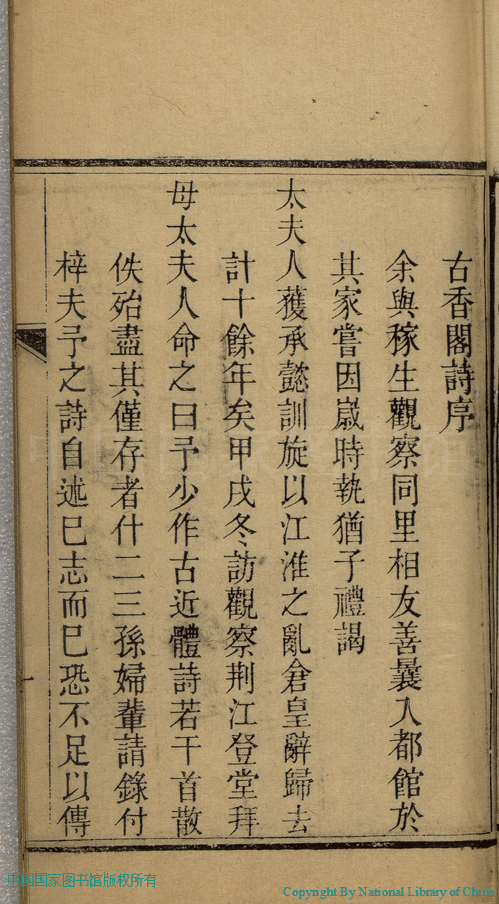 古香閣詩序
余與稼生觀察同里相友善曩入都館於
其家嘗因歲時執猶子禮謁
太夫人獲承懿訓旋以江淮之亂倉皇辭歸去
計十餘年矣甲戌冬訪觀察荆江登堂拜
母太夫人命之曰予少作古近體詩若干首散
佚殆盡其僅存者什二三孫婦輩請錄付
梓夫予之詩自述已志而已恐不足以傳
一
中国国家图书馆版权所有
Copyright By National Library of China